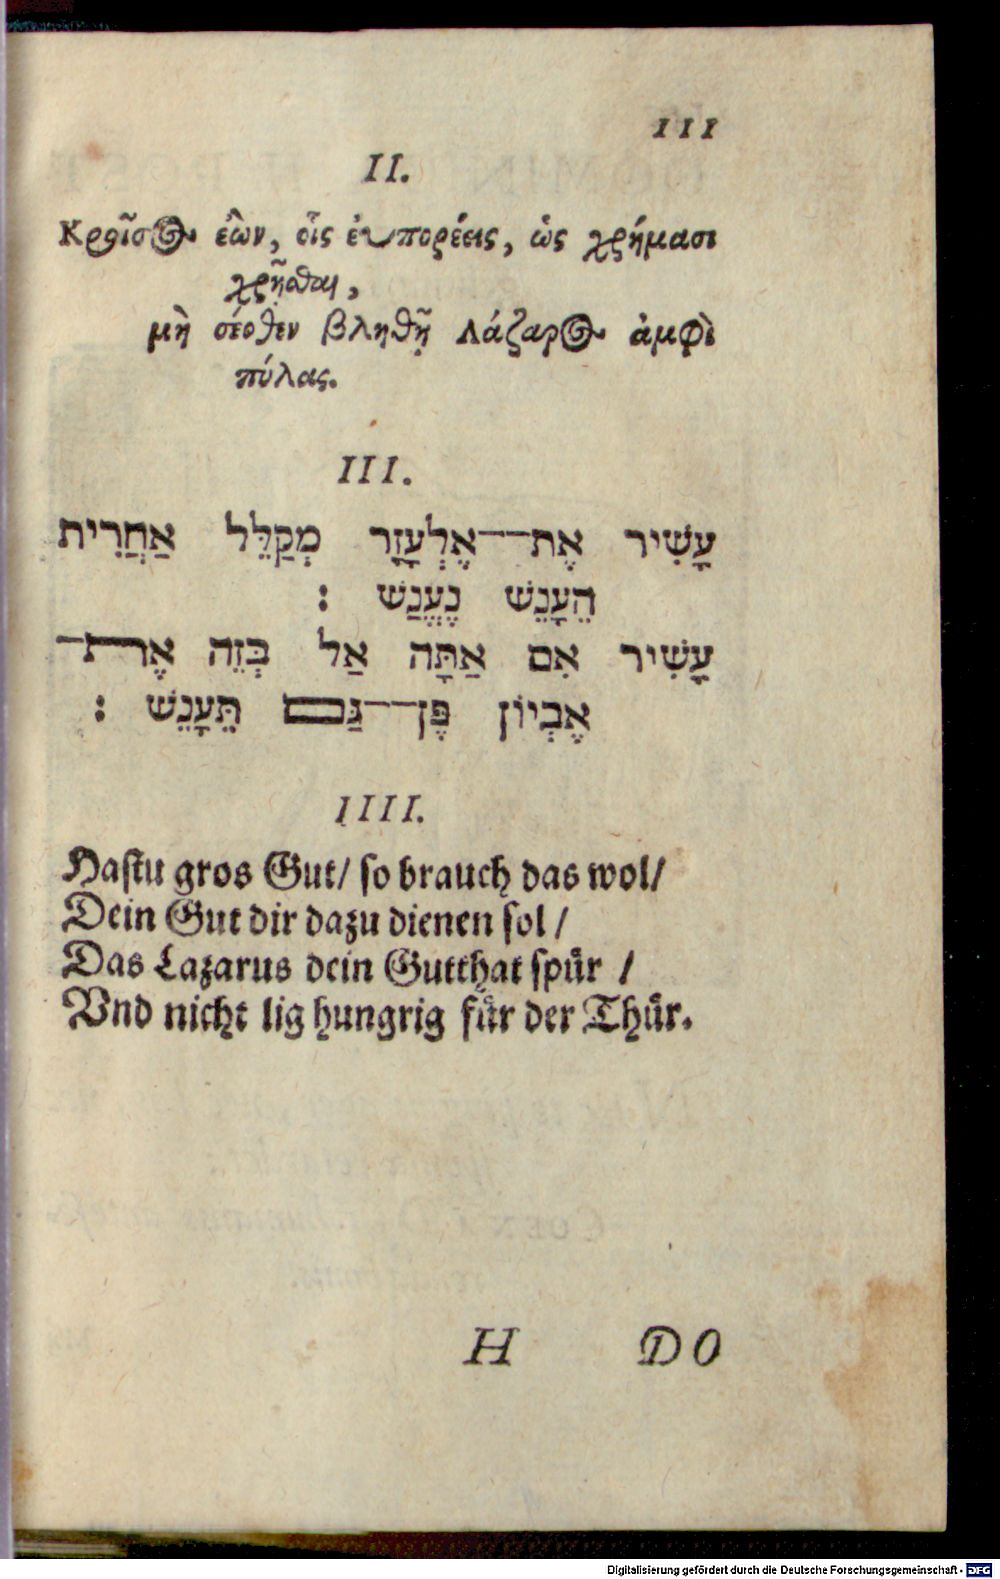 111
II.
Κροῖσος ἐὼν, οἷς εὐπορέεις, ὡς χρήμασι
χρῆσθαι,
μὴ σέοθεν βληθῇ Λάζαρος ἀμφὶ
πύλας.
III.
עָשִׁיר אֶת־אֶלְעָזָר מְקַלֵּל אַחֲרִית
הֵעָנֵשׁ נֶעֱנַשׁ :
עָשִׁיר אִם אַתָּה אַל בְּזֵה אֶת־
אֶבְיוֹן פֶּן־גַּם תֵּעָנֵשׁ :
IIII.
Haſtu gros Gut/ ſo brauch das wol/
Dein Gut dir dazu dienen ſol /
Das Lazarus dein Gutthat ſpuͤr /
Vnd nicht lig hungrig fuͤr der Thuͤr.
H DO
Digitalisierung gefördert durch die Deutsche Forschungsgemeinschaft - DFG